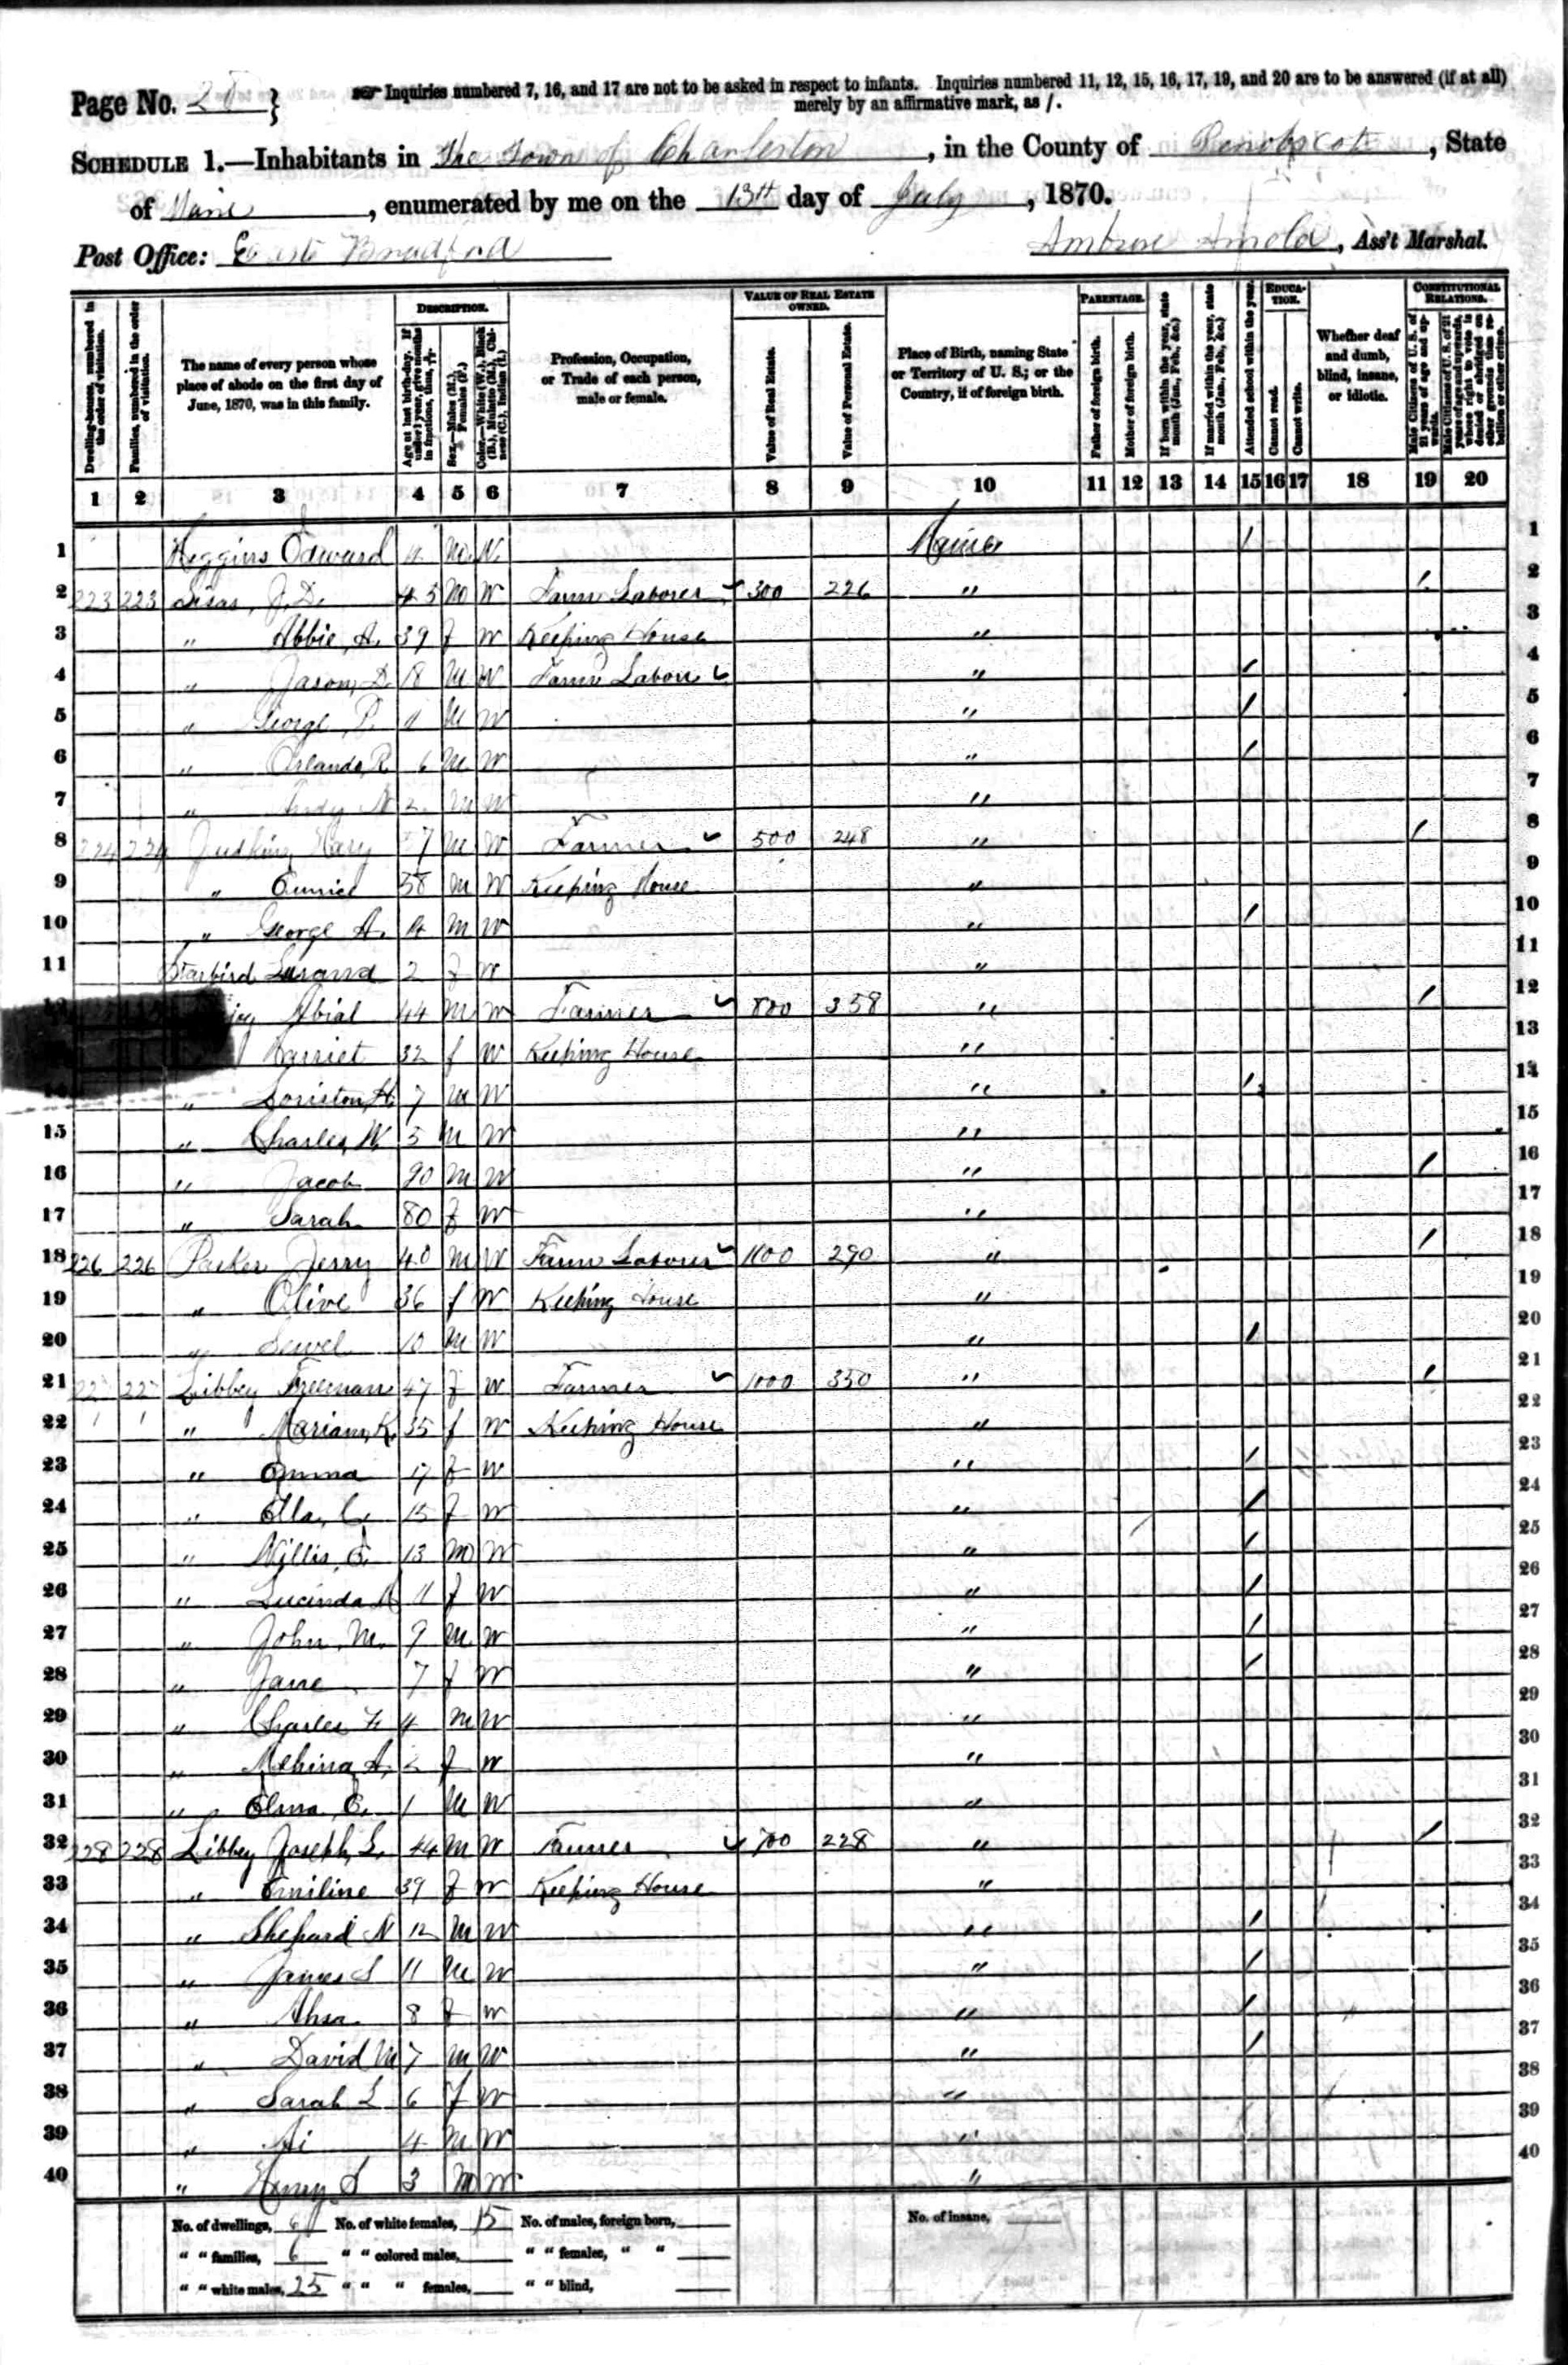 Page No. 28 } Inquiries numbered 7, 16, and 17 are not to be asked in respect to infants. Inquiries numbered 11, 12, 15, 16, 17, 19, and 20 are to be answered (if at all)
merely by an affirmative mark, as /.
SCHEDULE 1.—Inhabitants in The Town of Charleston, in the County of Penobscot, State
of Maine, enumerated by me on the 13th day of July, 1870.
Post Office: East Bradford Ambrose Arnold, Ass't Marshal.
Dwelling-houses, numbered in the order of visitation.
Families, numbered in the order of visitation.
The name of every person whose place of abode on the first day of June, 1870, was in this family.
DESCRIPTION.
Age at last birth-day. If under 1 year, give months in fractions, thus,
Sex.—Males (M.), Females (F.)
Color.—White (W.), Black (B.), Mulatto (M.), Chinese (C.), Indian (I.)
Profession, Occupation, or Trade of each person, male or female.
VALUE OF REAL ESTATE OWNED.
Value of Real Estate.
Value of Personal Estate.
Place of Birth, naming State or Territory of U. S.; or the Country, if of foreign birth.
PARENTAGE.
Father of foreign birth.
Mother of foreign birth.
If born within the year, state month (Jan., Feb., &c.)
If married within the year, state month (Jan., Feb., &c.)
Attended school within the year.
EDUCATION.
Cannot read.
Cannot write.
Whether deaf and dumb, blind, insane, or idiotic.
CONSTITUTIONAL RELATIONS.
Male Citizens of U. S. of 21 years of age and upwards.
Male Citizens of U. S. of 21 years of age and upwards, whose right to vote is denied or abridged on other grounds than rebellion or other crime.
1 2 3 4 5 6 7 8 9 10 11 12 13 14 15 16 17 18 19 20
1 Higgins Edward 11 M W Maine / 1
2 223 223 J. D. 45 M W Farm Laborer 300 226 " / 2
3 " Abbie, A. 39 f W Keeping House " 3
4 " Jason, D. 18 M W Farm Labor " / 4
5 " George, P. 11 M W " / 5
6 " Orlando, R. 6 M W " / 6
7 " Andy N 2 M W " 7
8 224 224 Judkins 7 M W Farmer 500 248 " / 8
9 " Eunice 58 M W Keeping House " 9
10 " George A. 14 M W " / 10
11 Starbird 2 f W " 11
12 Abial 44 M W Farmer 800 358 " / 12
Harriet 32 f W Keeping House " 13
14 " Loriston H. 7 M W " / 14
15 " Charles, W. 5 M W " 15
16 " Jacob 90 M W " / 16
17 " Sarah 80 f W " 17
18 226 226 Parker Jerry 40 M W Farm Laborer 1100 290 " / 18
19 " Olive 36 f W Keeping House " 19
20 " Sewel 10 M W " / 20
21 227 227 Libbey Freeman 47 f W Farmer 1000 350 " / 21
22 " Mariam, K. 35 f W Keeping House " 22
23 " Emma 17 f W " / 23
24 " Ella, C. 15 f W " / 24
25 " Willis, E. 13 M W " / 25
26 " Lucinda M 11 f W " / 26
27 " John, M. 9 M W " / 27
28 " Jane 7 f W " / 28
29 " Charles F. 4 M W " 29
30 " A. 2 f W " 30
31 " E. 1 M W " 31
32 228 228 Libbey Joseph, L. 44 M W Farmer 700 228 " / 32
33 " Emiline 39 f W Keeping House " 33
34 " Shepard N 12 M W " / 34
35 " James S 11 M W " / 35
36 " 8 f W " / 36
37 " David M 7 M W " / 37
38 " Sarah L 6 f W " 38
39 " Ai 4 M W " 39
40 " Henry S 3 M W " 40
No. of dwellings, 6 No. of white females, 15 No. of males, foreign born, No. of insane,
" " families, 6 " " colored males, " " females, " "
" " white males, 25 " " " females, " " blind,